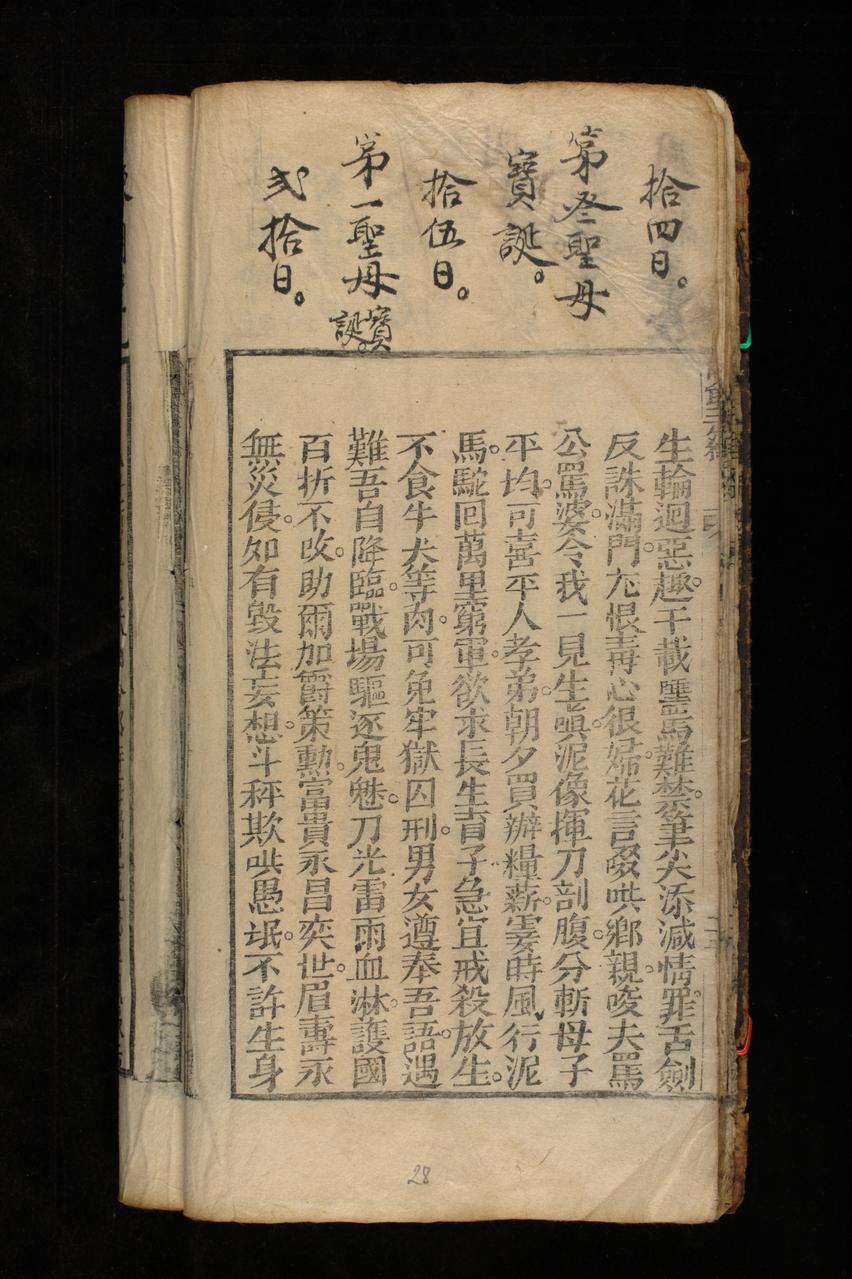 拾四日。
第叄聖母
寶誕。
拾伍日。
第一聖母寶誕。
弍拾日。
生輪迴惡趣。千載驢馬難禁。筆尖添減情罪。舌劍
反誅滿門。尢恨毒心很婦。花言啜哄鄉親。唆夫罵
公罵婆。令我一見生嗔。泥像揮刀剖腹。分斬母子
平均。可喜平人孝弟。朝夕買辦糧薪。霎時風行泥
馬。駝回萬里窮軍。欲求長生育子。急宜戒殺放生。
不食牛犬等肉。可免牢獄囚刑。男女遵奉吾語。遇
難吾自降臨。戰場驅逐鬼魅。刀光雷雨血淋。護國
百折不改。助爾加爵策勲。富貴永昌奕世。眉壽永
無災侵。如有毀法妄想。斗秤欺哄愚氓。不許生身
28